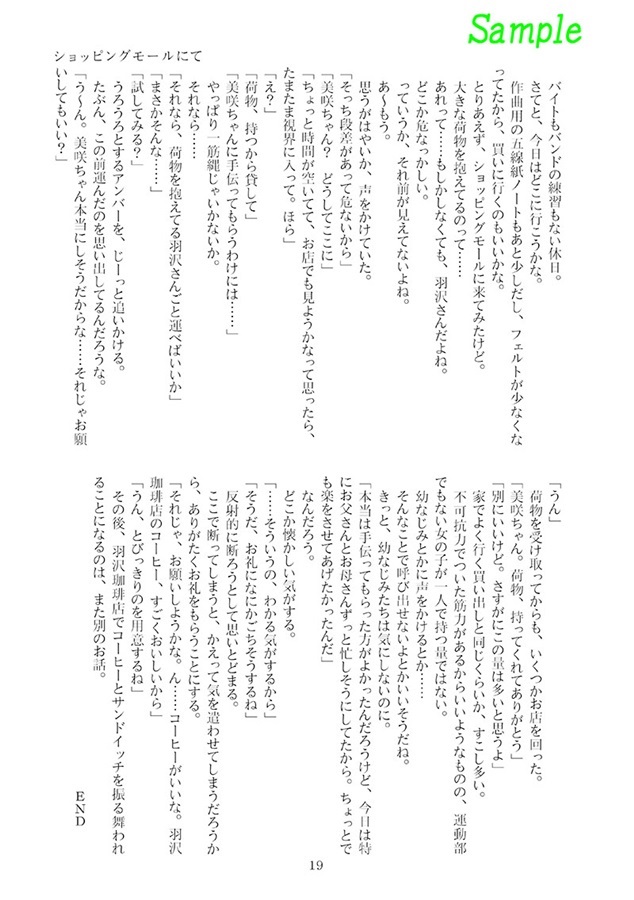 Sample
ショッピングモールにて
バイトもバンドの練習もない休日。
さてと、今日はどこに行こうかな。
作曲用の五線紙ノートもあと少しだし、フェルトが少なくな
ってたから、買いに行くのもいいかな。
とりあえず、ショッピングモールに来てみたけど。
大きな荷物を抱えてるのって……
あれって……もしかしなくても、羽沢さんだよね。
どこか危なっかしい。
っていうか、それ前が見えてないよね。
あ～もう。
思うがはやいか、声をかけていた。
「そっち段差があって危ないから」
「美咲ちゃん？　どうしてここに」
「ちょっと時間が空いてて、お店でも見ようかなって思ったら、
たまたま視界に入って。ほら」
「え？」
「荷物、持つから貸して」
「美咲ちゃんに手伝ってもらうわけには……」
やっぱり一筋縄じゃいかないか。
それなら……
「それなら、荷物を抱えてる羽沢さんごと運べばいいか」
「まさかそんな……」
「試してみる？」
うろうろとするアンバーを、じーっと追いかける。
たぶん、この前運んだのを思い出してるんだろうな。
「う～ん。美咲ちゃん本当にしそうだからな……それじゃお願
いしてもいい？」
「うん」
荷物を受け取ってからも、いくつかお店を回った。
「美咲ちゃん。荷物、持ってくれてありがとう」
「別にいいけど。さすがにこの量は多いと思うよ」
家でよく行く買い出しと同じくらいか、すこし多い。
不可抗力でついた筋力があるからいいようなものの、運動部
でもない女の子が一人で持つ量ではない。
幼なじみとかに声をかけるとか……
そんなことで呼び出せないよとかいいそうだね。
きっと、幼なじみたちは気にしないのに。
「本当は手伝ってもらった方がよかったんだろうけど、今日は特
にお父さんとお母さんずっと忙しそうにしてたから。ちょっとで
も楽をさせてあげたかったんだ」
なんだろう。
どこか懐かしい気がする。
「……そういうの、わかる気がするから」
「そうだ、お礼になにかごちそうするね」
反射的に断ろうとして思いとどまる。
ここで断ってしまうと、かえって気を遣わせてしまうだろうか
ら、ありがたくお礼をもらうことにする。
「それじゃ、お願いしようかな。ん……コーヒーがいいな。羽沢
珈琲店のコーヒー、すごくおいしいから」
「うん、とびっきりのを用意するね」
その後、羽沢珈琲店でコーヒーとサンドイッチを振る舞われ
ることになるのは、また別のお話。
END
19